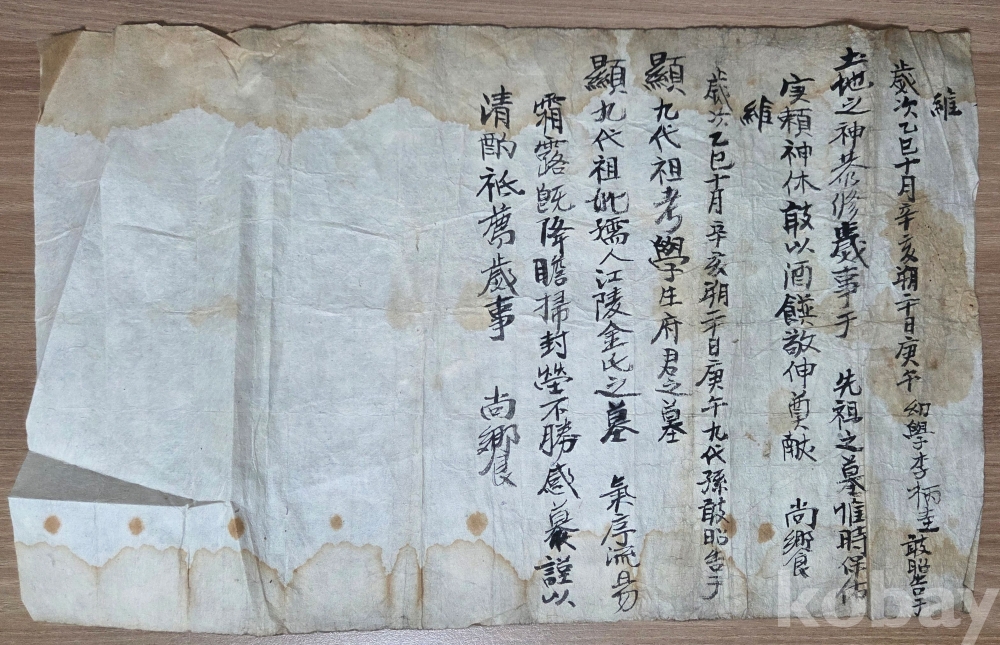 維
歲次乙巳十月辛亥朔二十日庚午 幼學李炳圭 敢昭告于
土地之神恭修歲事于 先祖之墓惟時保佑
実賴神休敢以酒饌敬伸奠献 尙饗
維
歲次乙巳十月辛亥朔二十日庚午九代孫敢昭告于
顯九代祖考學生府君之墓
顯九代祖妣孺人江陵金氏之墓 氣序流易
霜露旣降瞻掃封塋不勝感慕謹以
清酌祗薦歲事 尙饗
kobay